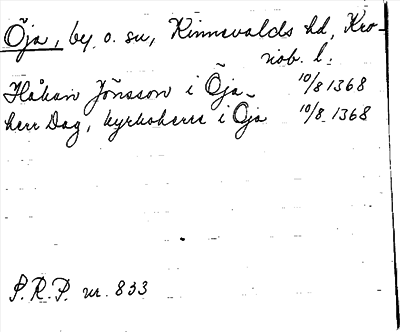 Öja, by o. sn, Kinnevalds hd, Kro-
nob. l.
Håkan Jönsson i Öja 10/8 1368
herr Dag, kyrkoherre i Öja 10/8 1368
P.R.P. nr. 833